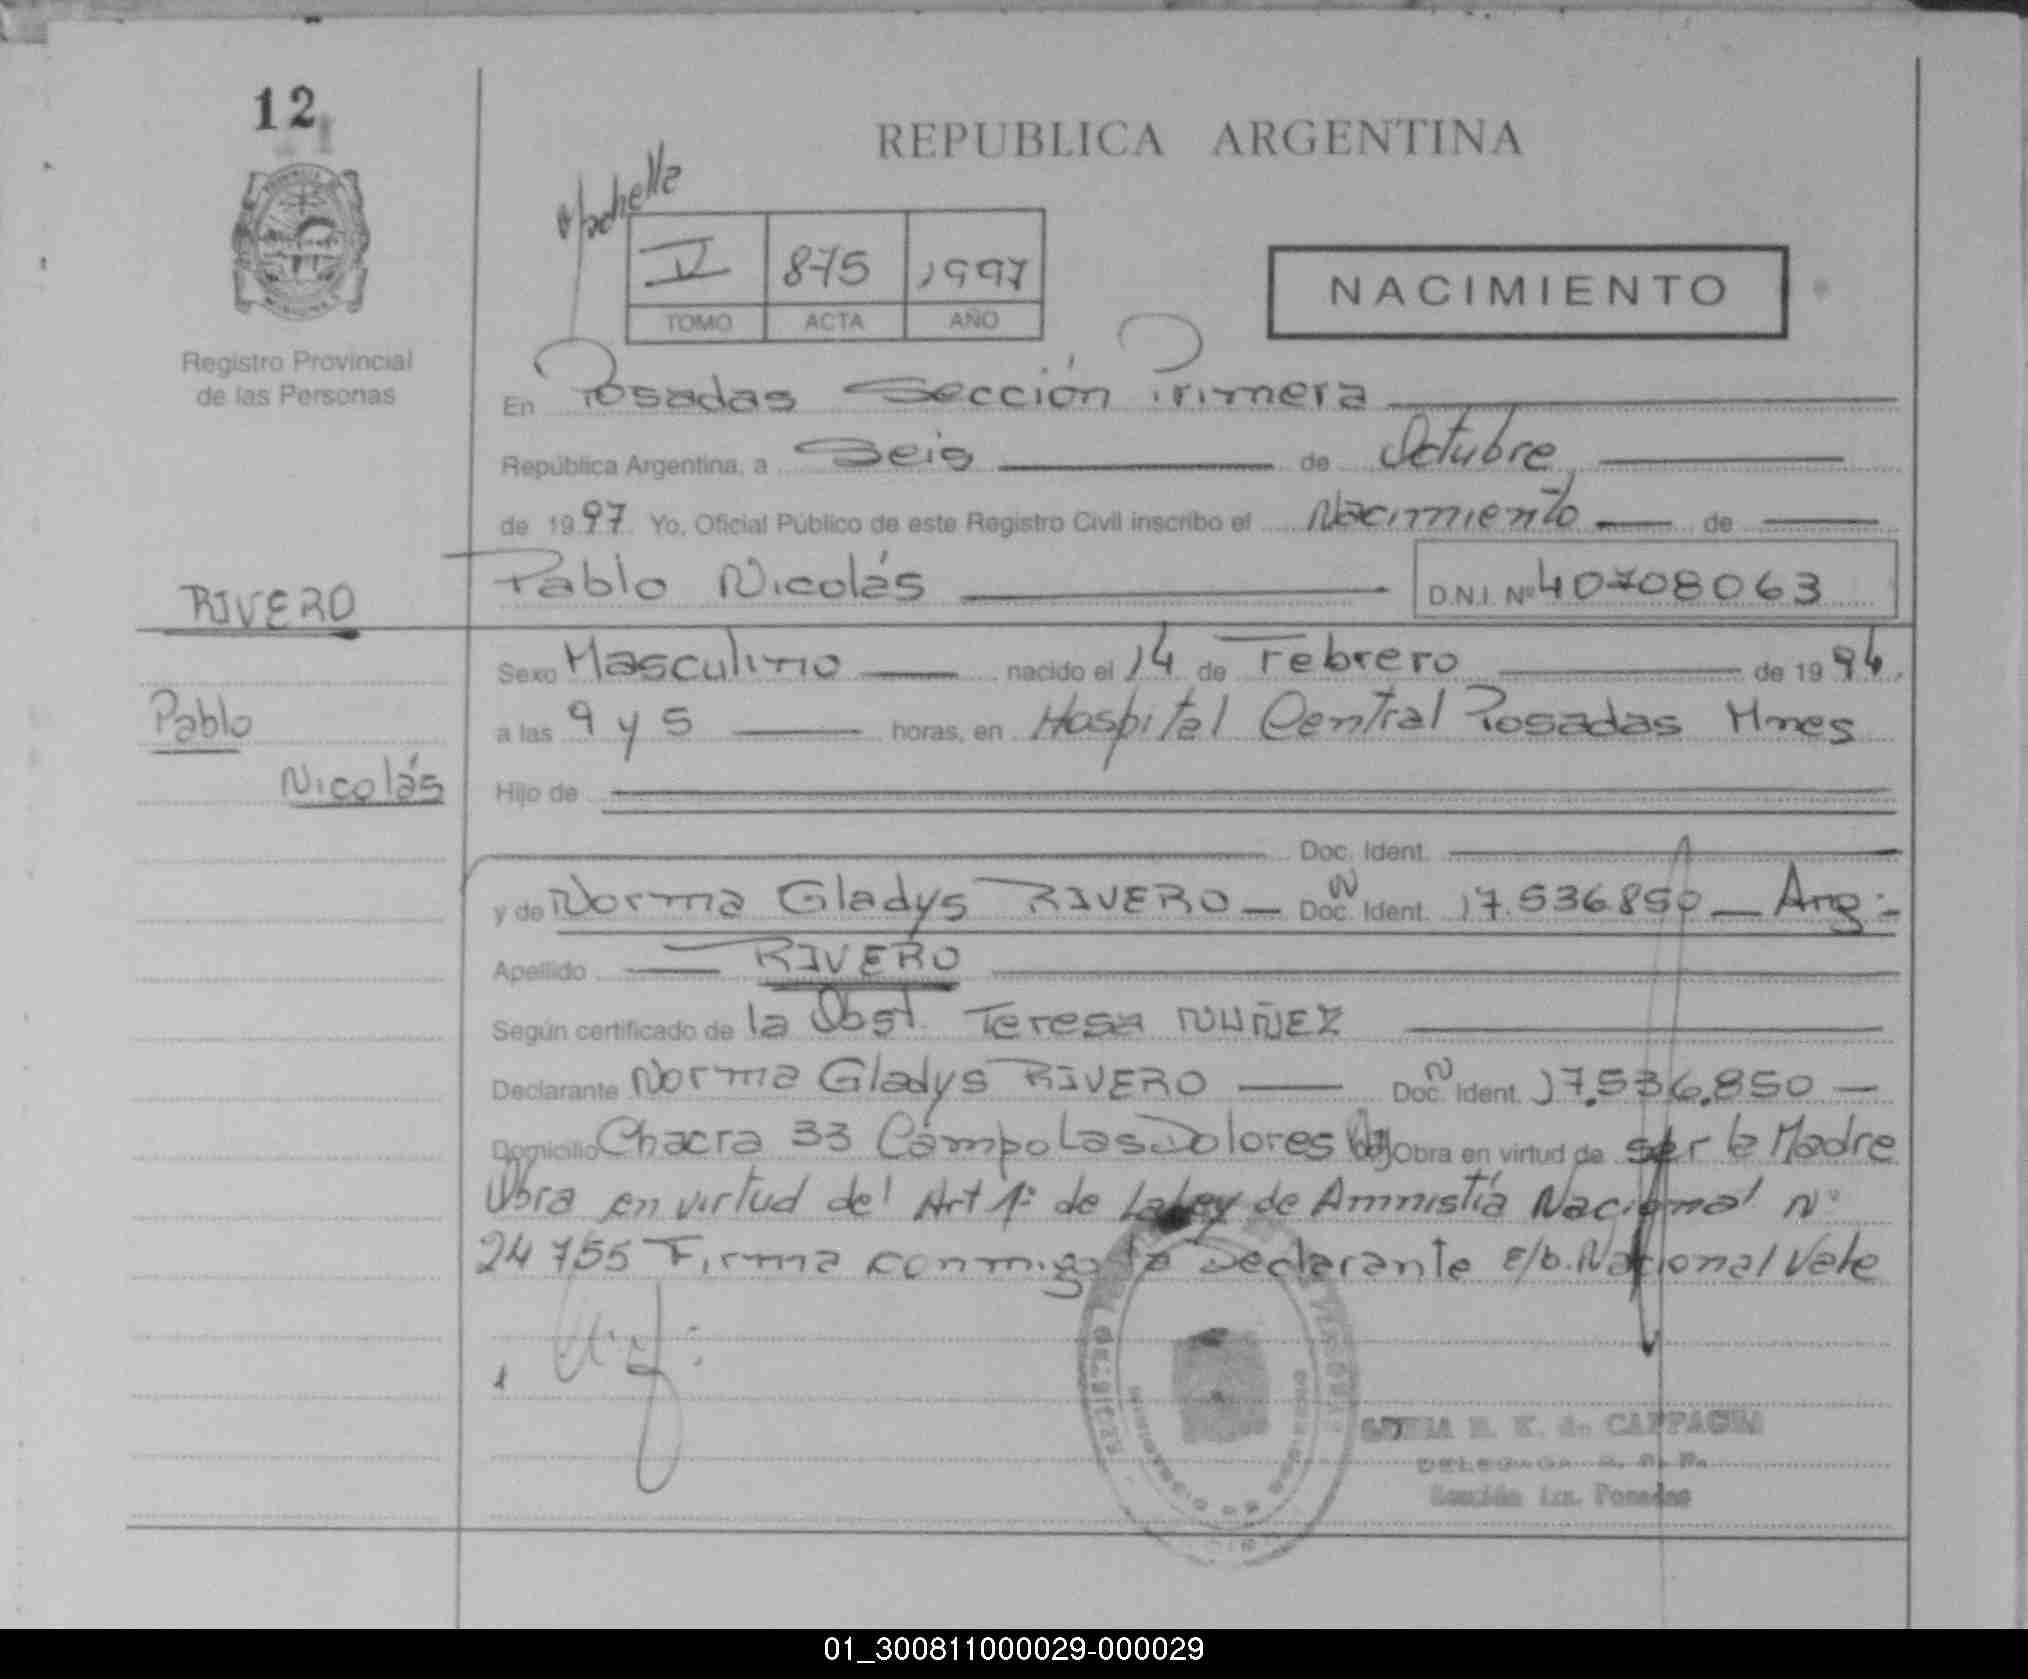 12
REPUBLICA ARGENTINA
V 875 1997
TOMO ACTA AÑO
NACIMIENTO
Registro Provincial
de las Personas
En Posadas Sección Primera
República Argentina, a Seis de Octubre
de 1997 Yo, Oficial Público de este Registro Civil inscribo el Nacimiento de
RIVERO
Pablo Nicolás
D.N.I. Nº 40708063
Sexo Masculino nacido el 14 de Febrero de 1994
Pablo
a las 9 y 5 horas, en Hospital Central Posadas Mnes
Nicolás
Hijo de
Doc. Ident.
y de Norma Gladys RIVERO Doc. N Ident. 17.536.850 Arg.
Apellido RIVERO
Según certificado de la Obst. Teresa NUÑEZ
Declarante Norma Gladys RIVERO Doc. N Ident. 17.536.850
Domicilio Chacra 33 Campo Las Dolores Obra en virtud de ser la Madre
Obra en virtud del Art 1º de la Ley de Amnistía Nacional Nº
24755 Firma conmigo la Declarante E/b. Nacional Vale
K. de CAPPAGLI
DELEGADA
Sección 1ra. Posadas
01_300811000029-000029